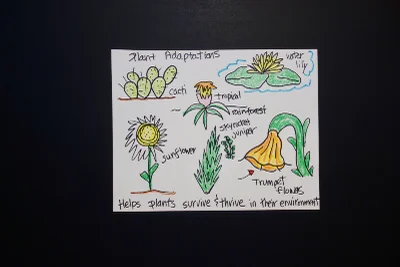 Plant Adaptations
water
lily
cacti
tropical
rainforest
skyrocket
juniper
sunflower
Trumpet
flowers
Helps plants survive & thrive in their environment